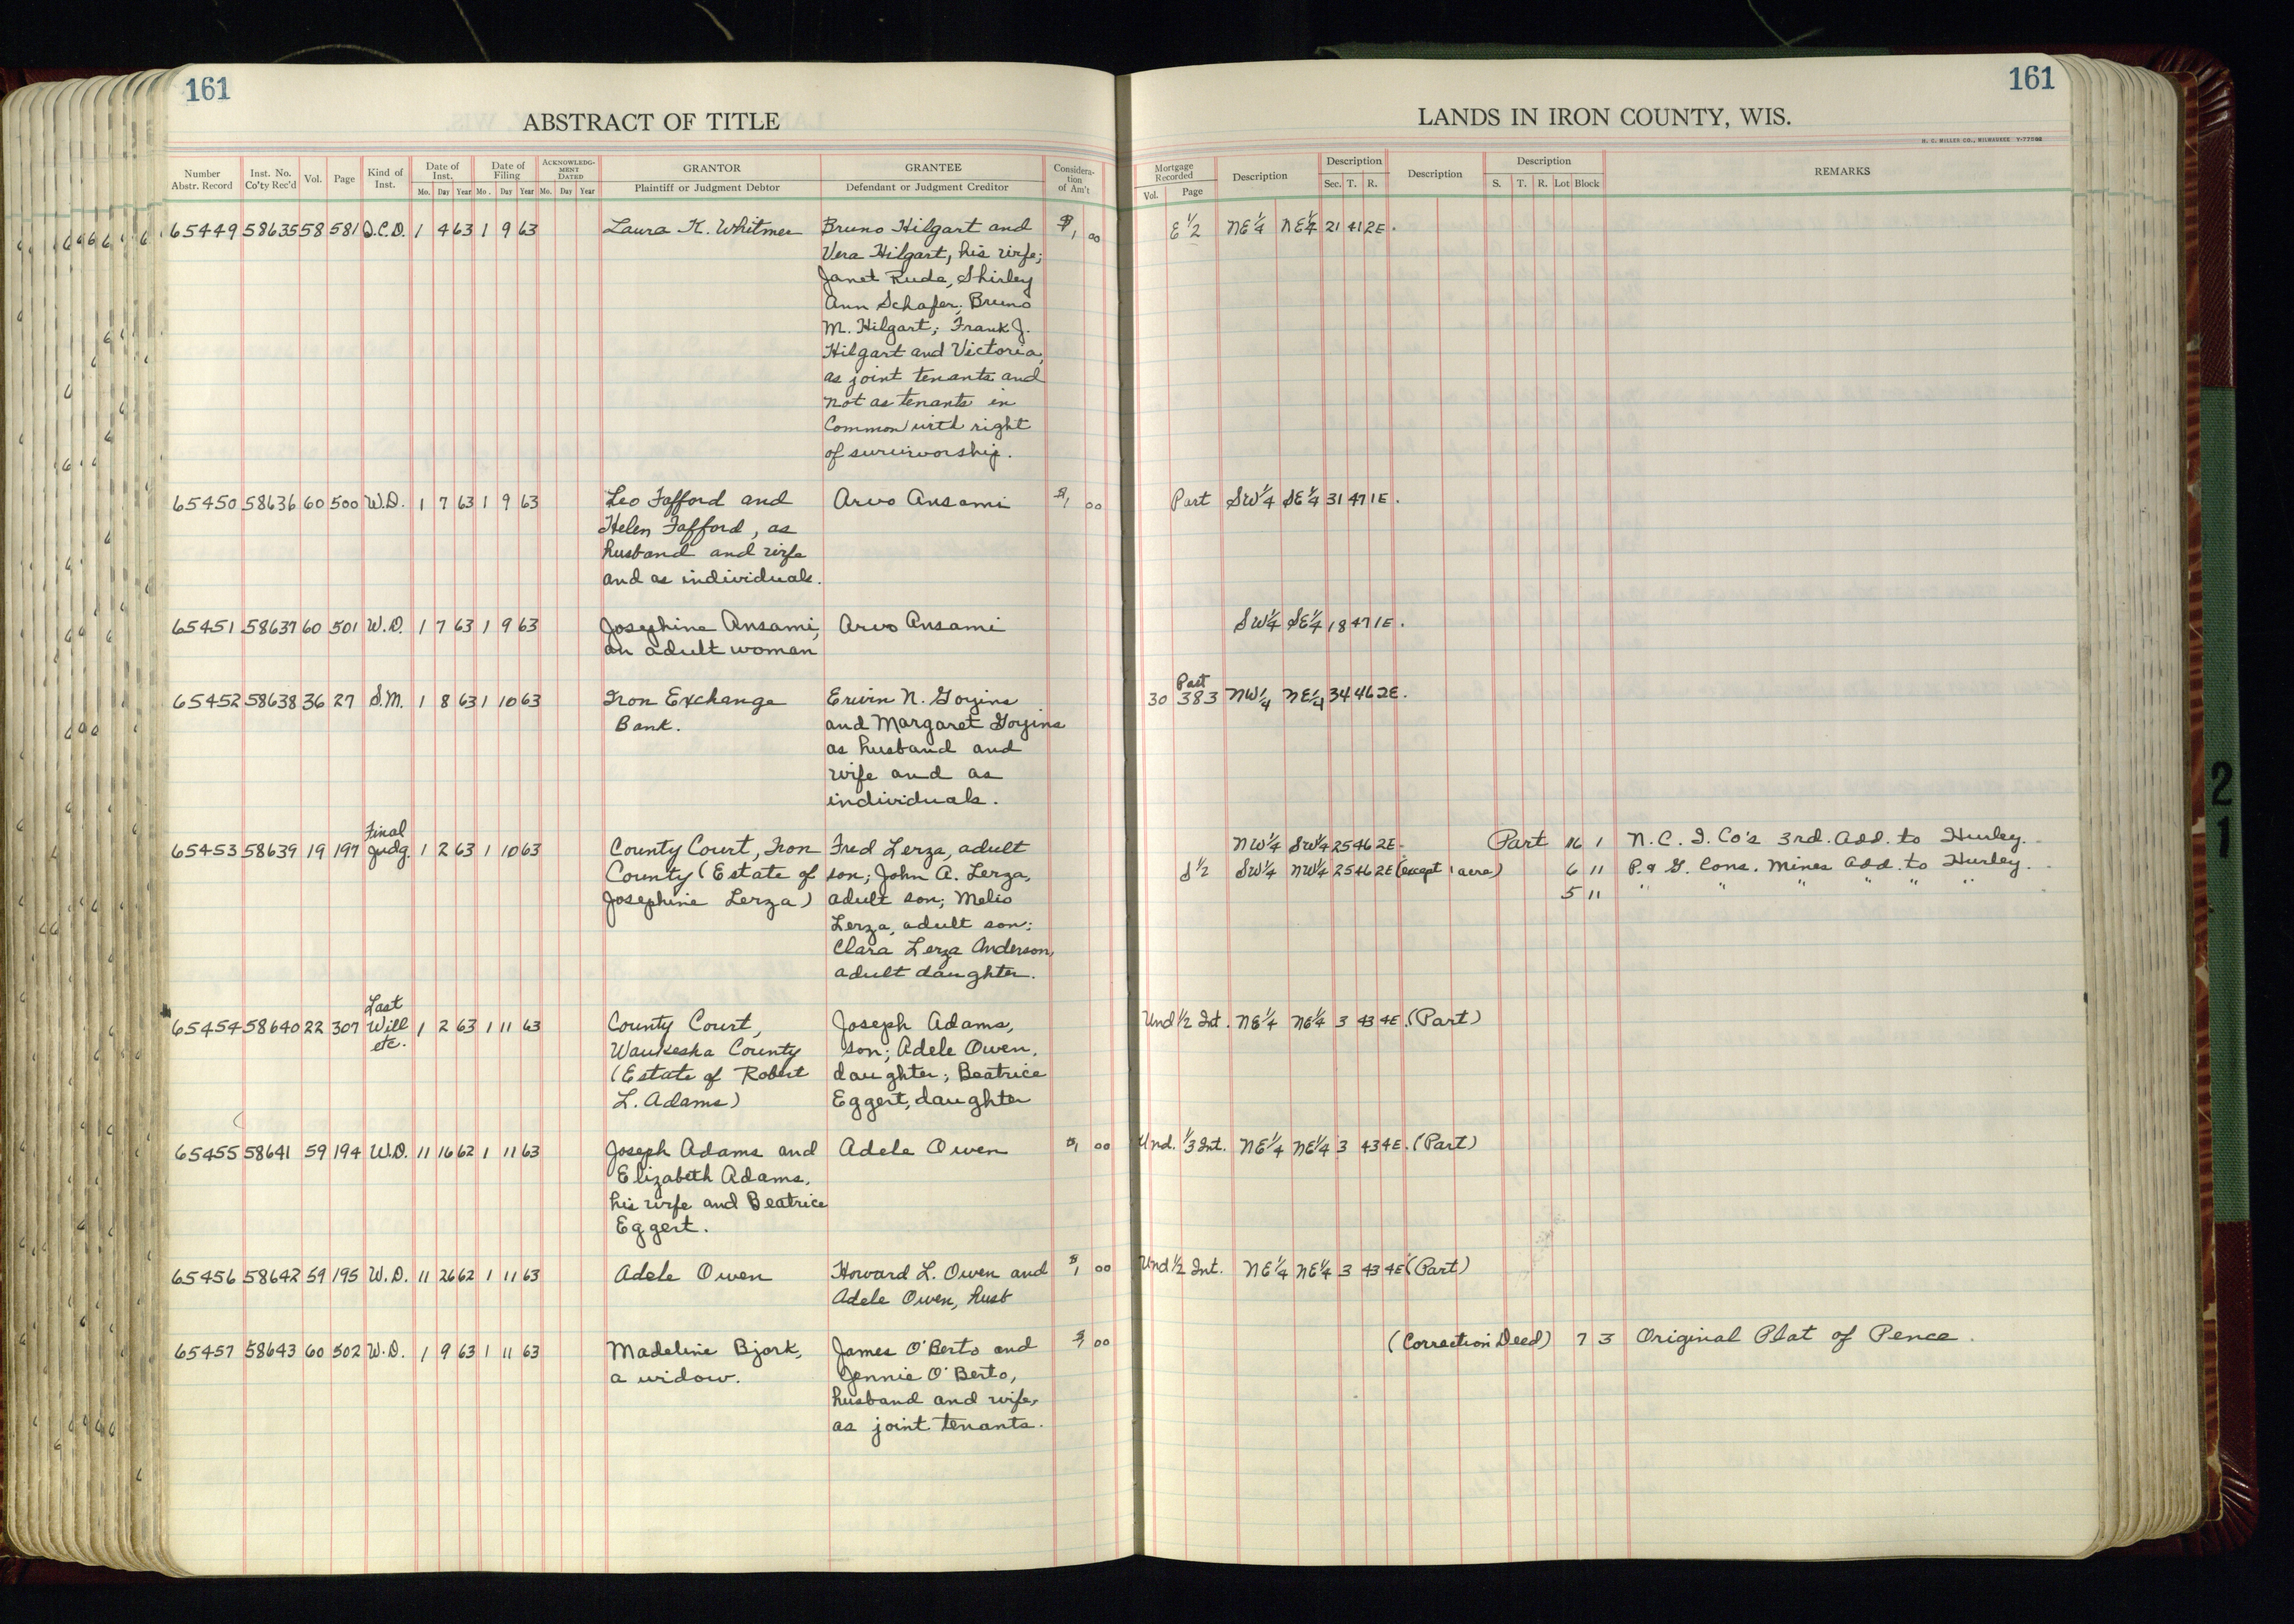 161
161
ABSTRACT OF TITLE
LANDS IN IRON COUNTY, WIS.
H. C. MILLER CO., MILWAUKEE Y-77098
Number Abstr. Record | Inst. No. Co'ty Rec'd | Vol. | Page | Kind of Inst. | Date of Inst. Mo. Day Year | Date of Filing Mo. Day Year | ACKNOWLEDGMENT DATED Mo. Day Year | GRANTOR Plaintiff or Judgment Debtor | GRANTEE Defendant or Judgment Creditor | Consideration of Am't
Mortgage Recorded Vol. Page | Description | Description Sec. T. R. | Description | Description S. T. R. Lot Block | REMARKS
65449 58635 58 581 Q.C.D. 1 4 63 1 9 63 Laura K. Whitmer Bruno Hilgart and $1 00 E 1/2 NE 1/4 NE 1/4 21 41 2E.
Vera Hilgart, his wife;
Janet Ruda, Shirley
Ann Schafer; Bruno
M. Hilgart; Frank J.
Hilgart and Victoria,
as joint tenants and
not as tenants in
Common with right
of surviworship.
65450 58636 60 500 W.D. 1 7 63 1 9 63 Leo Fafford and Arvo Ansami $1 00 Part SW 1/4 SE 1/4 31 47 1E.
Helen Fafford, as
husband and wife
and as individuals.
65451 58637 60 501 W.D. 1 7 63 1 9 63 Josephine Ansami, Arvo Ansami SW 1/4 SE 1/4 18 47 1E.
an adult woman
Part
65452 58638 36 27 S.M. 1 8 63 1 10 63 Iron Exchange Erwin N. Goyins 30 383 NW 1/4 NE 1/4 34 46 2E.
Bank. and Margaret Goyins
as husband and
wife and as
individuals.
Final
65453 58639 19 197 Judg. 1 2 63 1 10 63 County Court, Iron Fred Lerza, adult NW 1/4 SW 1/4 25 46 2E. Part 16 1 N.C.I. Co's 3rd. Add. to Hurley.
County (Estate of son; John A. Lerza, S 1/2 SW 1/4 NW 1/4 25 46 2E (except 1 acre) 6 11 P. & G. Cons. Mines Add. to Hurley.
Josephine Lerza) adult son; Melio 5 11 " " " " "
Lerza, adult son;
Clara Lerza Anderson,
adult daughter.
Last
65454 58640 22 307 Will 1 2 63 1 11 63 County Court, Joseph Adams, Und 1/2 Int. NE 1/4 NE 1/4 3 43 4E. (Part)
etc. Waukesha County son; Adele Owen,
(Estate of Robert daughter; Beatrice
L. Adams) Eggert, daughter
65455 58641 59 194 W.D. 11 16 62 1 11 63 Joseph Adams and Adele Owen $1 00 Und. 1/3 Int. NE 1/4 NE 1/4 3 43 4E. (Part)
Elizabeth Adams,
his wife and Beatrice
Eggert.
65456 58642 59 195 W.D. 11 26 62 1 11 63 Adele Owen Howard L. Owen and $1 00 Und 1/2 Int. NE 1/4 NE 1/4 3 43 4E (Part)
Adele Owen, husb
65457 58643 60 502 W.D. 1 9 63 1 11 63 Madeline Bjork, James O'Berto and $1 00 (Correction Deed) 7 3 Original Plat of Pence.
a widow. Jennie O'Berto,
husband and wife,
as joint tenants.
21